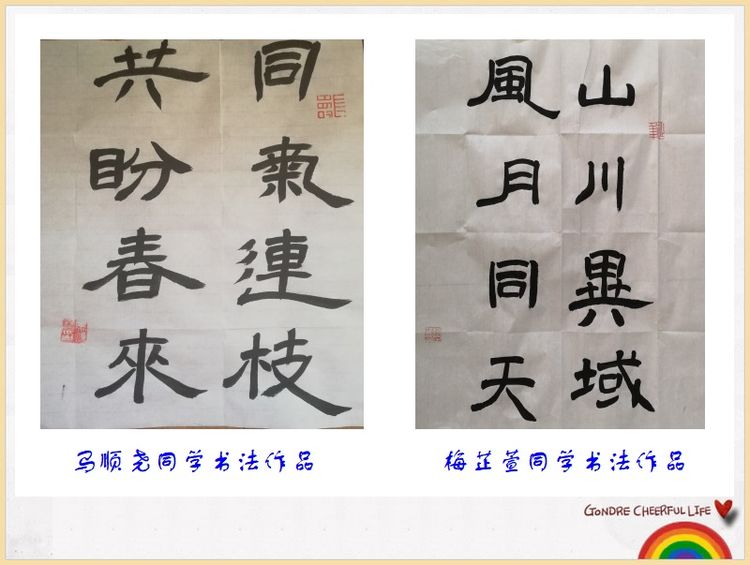 同氣連枝
共盼春來
山川異域
風月同天
马顺尧同学书法作品
梅芷萱同学书法作品
GONDRE CHEERFUL LIFE